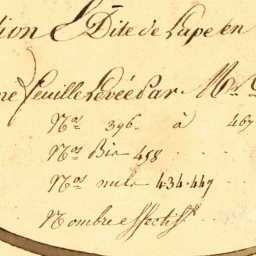 tion E Dite de Lupé en
ne feuille Levée Par M.rs
N.os 396 à 467
N.os Bis 458
N.os nuls 434.449
Nombre effectif